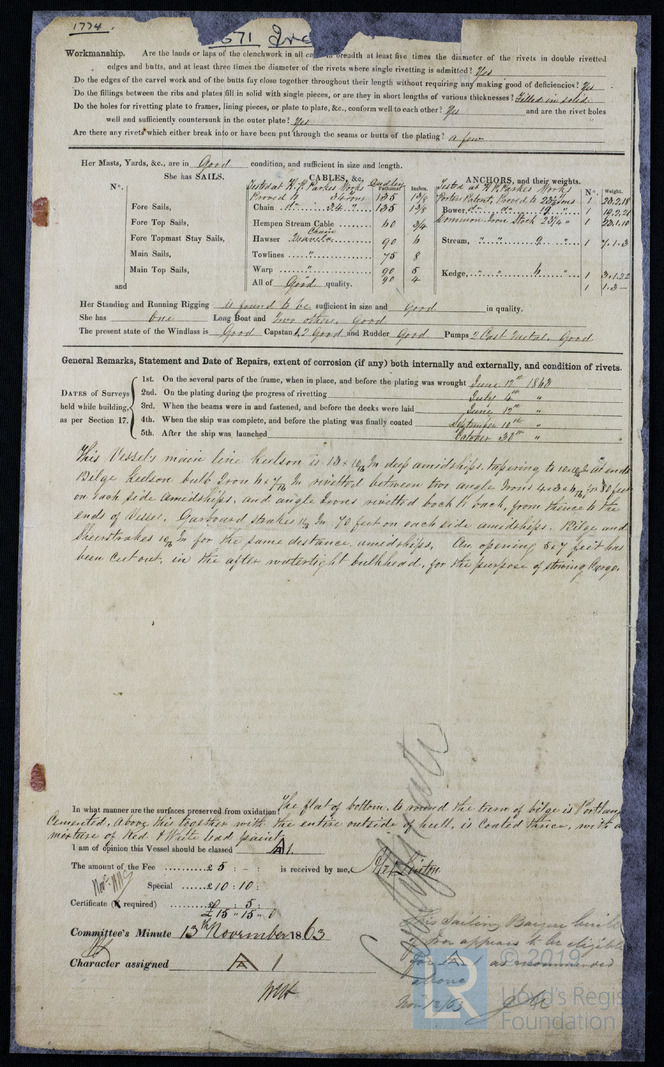 1774
571 Iro
Workmanship. Are the lands or laps of the clenchwork in all cases in breadth at least five times the diameter of the rivets in double rivetted
edges and butts, and at least three times the diameter of the rivets where single rivetting is admitted? Yes
Do the edges of the carvel work and of the butts fay close together throughout their length without requiring any making good of deficiencies? Yes
Do the fillings between the ribs and plates fill in solid with single pieces, or are they in short lengths of various thicknesses? Filled in solid
Do the holes for rivetting plate to frames, lining pieces, or plate to plate, &c., conform well to each other? Yes and are the rivet holes
well and sufficiently countersunk in the outer plate? Yes
Are there any rivets which either break into or have been put through the seams or butts of the plating? a few
Her Masts, Yards, &c., are in Good condition, and sufficient in size and length.
She has SAILS. CABLES, &c. ANCHORS, and their weights.
N°. Tested at H.P. Parkes Works Dudley Fathoms Inches. Tested at H.P. Parkes Works N°. Weight.
Proved to 34 tons 135 1 3/8 Porters Patent Proved to
Fore Sails, Chain 34 135 1 3/8 Bower,
Fore Top Sails, Hempen Stream Cable 60 3/4 Common Iron Stock
Fore Topmast Stay Sails, Hawser Chain 90 6 Stream, 9 1 7.1.3
Main Sails, Towlines 75 8
Main Top Sails, Warp 90 5 Kedge, 1 3.1.22
and All of Good quality. 90 4 1 1.3
Her Standing and Running Rigging is found to be sufficient in size and Good in quality.
She has One Long Boat and Two others Good
The present state of the Windlass is Good Capstan & 2 Good and Rudder Good Pumps 2 Cast Metal, Good
General Remarks, Statement and Date of Repairs, extent of corrosion (if any) both internally and externally, and condition of rivets.
DATES of Surveys
held while building,
as per Section 17.
1st. On the several parts of the frame, when in place, and before the plating was wrought June 12th 1863
2nd. On the plating during the progress of rivetting July 4th "
3rd. When the beams were in and fastened, and before the decks were laid June 12th "
4th. When the ship was complete, and before the plating was finally coated September 18th "
5th. After the ship was launched October 30th "
This Vessels main line Keelson is In deep amidships, tapering to at ends
Bilge Keelson bulb Iron In rivetted between two angle Irons for 80 feet
on each side amidships, and angle Irons rivetted back to back, from thence to the
ends of Vessel. Garboard strakes In 70 feet on each side amidships. Bilge and
Sheerstrakes In for the same distance amidships, An opening 8 x 7 feet has
been cut out, in the after watertight bulkhead, for the purpose of stowing Cargo.
In what manner are the surfaces preserved from oxidation? The flat of bottom, to round the turn of bilge is Portland
Cemented, Above this together with the entire outside of hull, is Coated thrice, with a
mixture of Red & White lead paint.
I am of opinion this Vessel should be classed A 1.
The amount of the Fee £ 5 : - : is received by me,
Special £ 10 : 10 :
Certificate (if required) : 5 :
£ 15 " 15 " 0
Committee's Minute 13th November 1863
Character assigned A 1
This Sailing Barque built
appears to be eligible
for A 1 as recommended
above
Nov 12/63
© 2019
LR
Lloyd's Register
Foundation